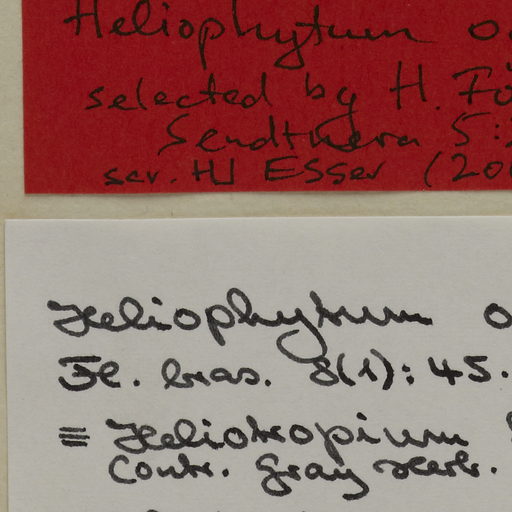 Heliophytum
selected by H. Fö
Sendtnera 5:
scr. HJ Esser (200
Heliophytum
Fl. bras. 8(1): 45.
≡ Heliotropium
Contr. Gray Herb.